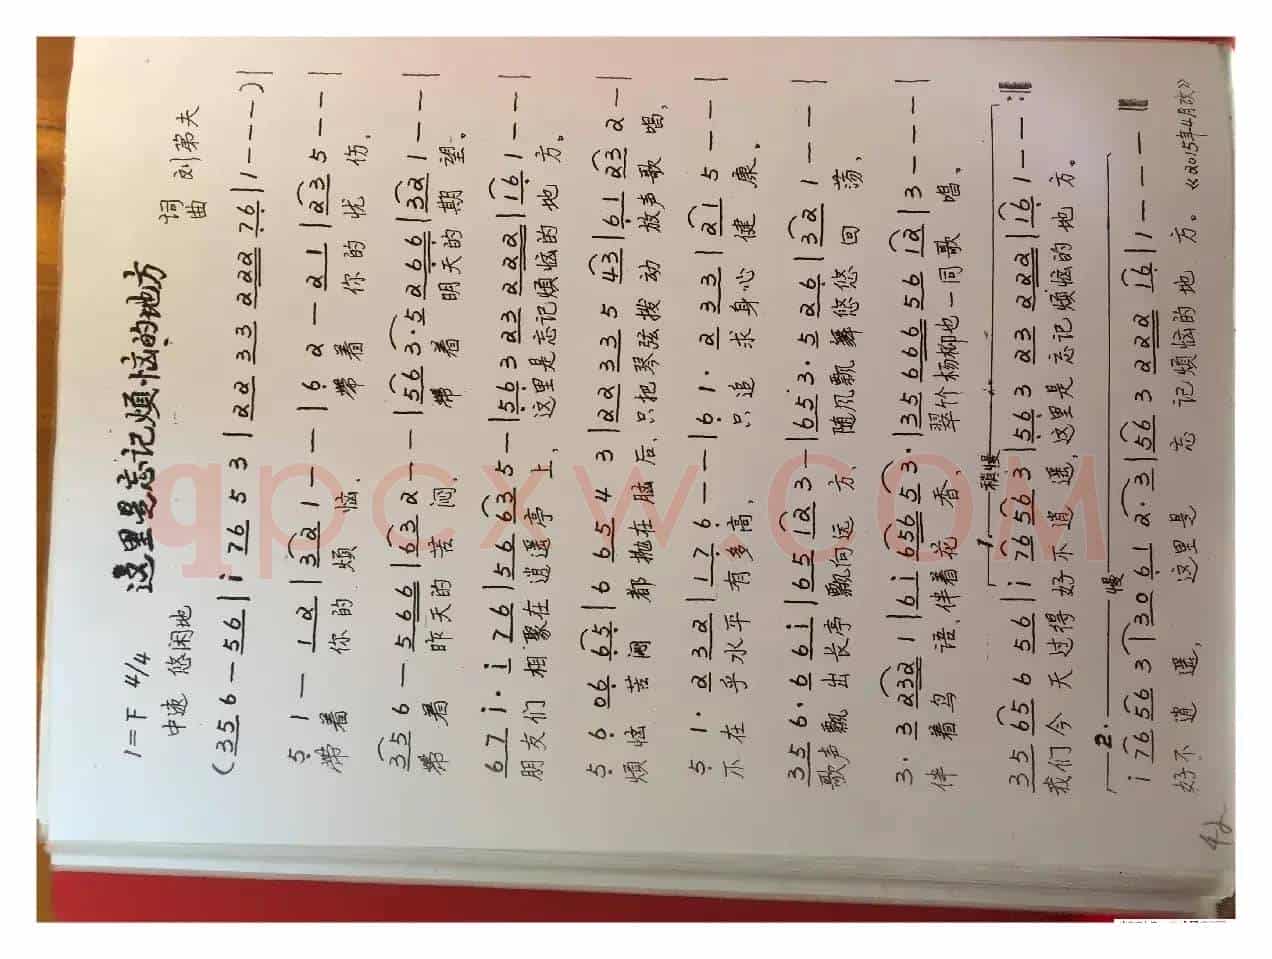 这里是忘记烦恼的地方
1=F 4/4
中速 悠闲地
词曲 刘第夫
(356 - 56 | i 76 5 3 | 22 33 222 76 | 1 - - - ) |
5 1 - 12 | 321 - - | 6 2 - 21 | 235 - - - |
带着 你的 烦 恼, 带 着 你的 忧 伤,
356 - 5666 | 632 - - | 563·5 266 | 321 - - - |
带 着 昨天的 苦 闷, 带 着 明天的 期 望。
67 i · i 76 | 56 635 - | 563 23 222 | 161 - - - |
朋友们 相聚在 逍遥亭 上, 这里是忘记烦恼的地 方。
5 6 06 65 | 6 65 4 3 | 22 33 5 43 | 61 232 - |
烦 恼 苦 闷 都 抛在 脑 后, 只把琴弦拨 动 放声歌 唱,
5 1 · 2 32 | 176 - - | 61 · 2 33 | 21 5 - - |
不 在 乎 水平 有多 高, 只 追 求 身心 健 康。
356 · 66i | 65 123 - | 653 · 5 26 | 321 - - |
歌声飘 出 长亭 飘向远 方, 随风飘 舞 悠悠 回 荡,
3 · 3 232 1 | 61i 65653 · | 35666 56 12 | 3 - - - |
伴 着鸟 语、伴着花 香, 翠竹杨柳也一同歌 唱。
1. 稍慢
35 656 56 | i 76563 | 563 23 222 | 161 - - - :‖
我们今 天 过得 好不 逍 遥, 这里是 忘记烦恼的地 方。
2. 慢
i 76563 | 30 61 2·3 | 563 222 16 | 1 - - - ‖
好不 逍 遥, 这里是 忘 记烦恼的 地 方。
《2015年4月改》
42
qpcxw.com